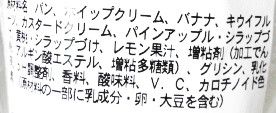 原材料名 パン、ホイップクリーム、バナナ、キウイフル
ツ、カスタードクリーム、パインアップル・シラップづ
黄桃・シラップづけ、レモン果汁、増粘剤(加工でん
アルギン酸エステル、増粘多糖類)、グリシン、乳化
調整剤、香料、酸味料、V.C、カロチノイド色
原材料の一部に乳成分・卵・大豆を含む)